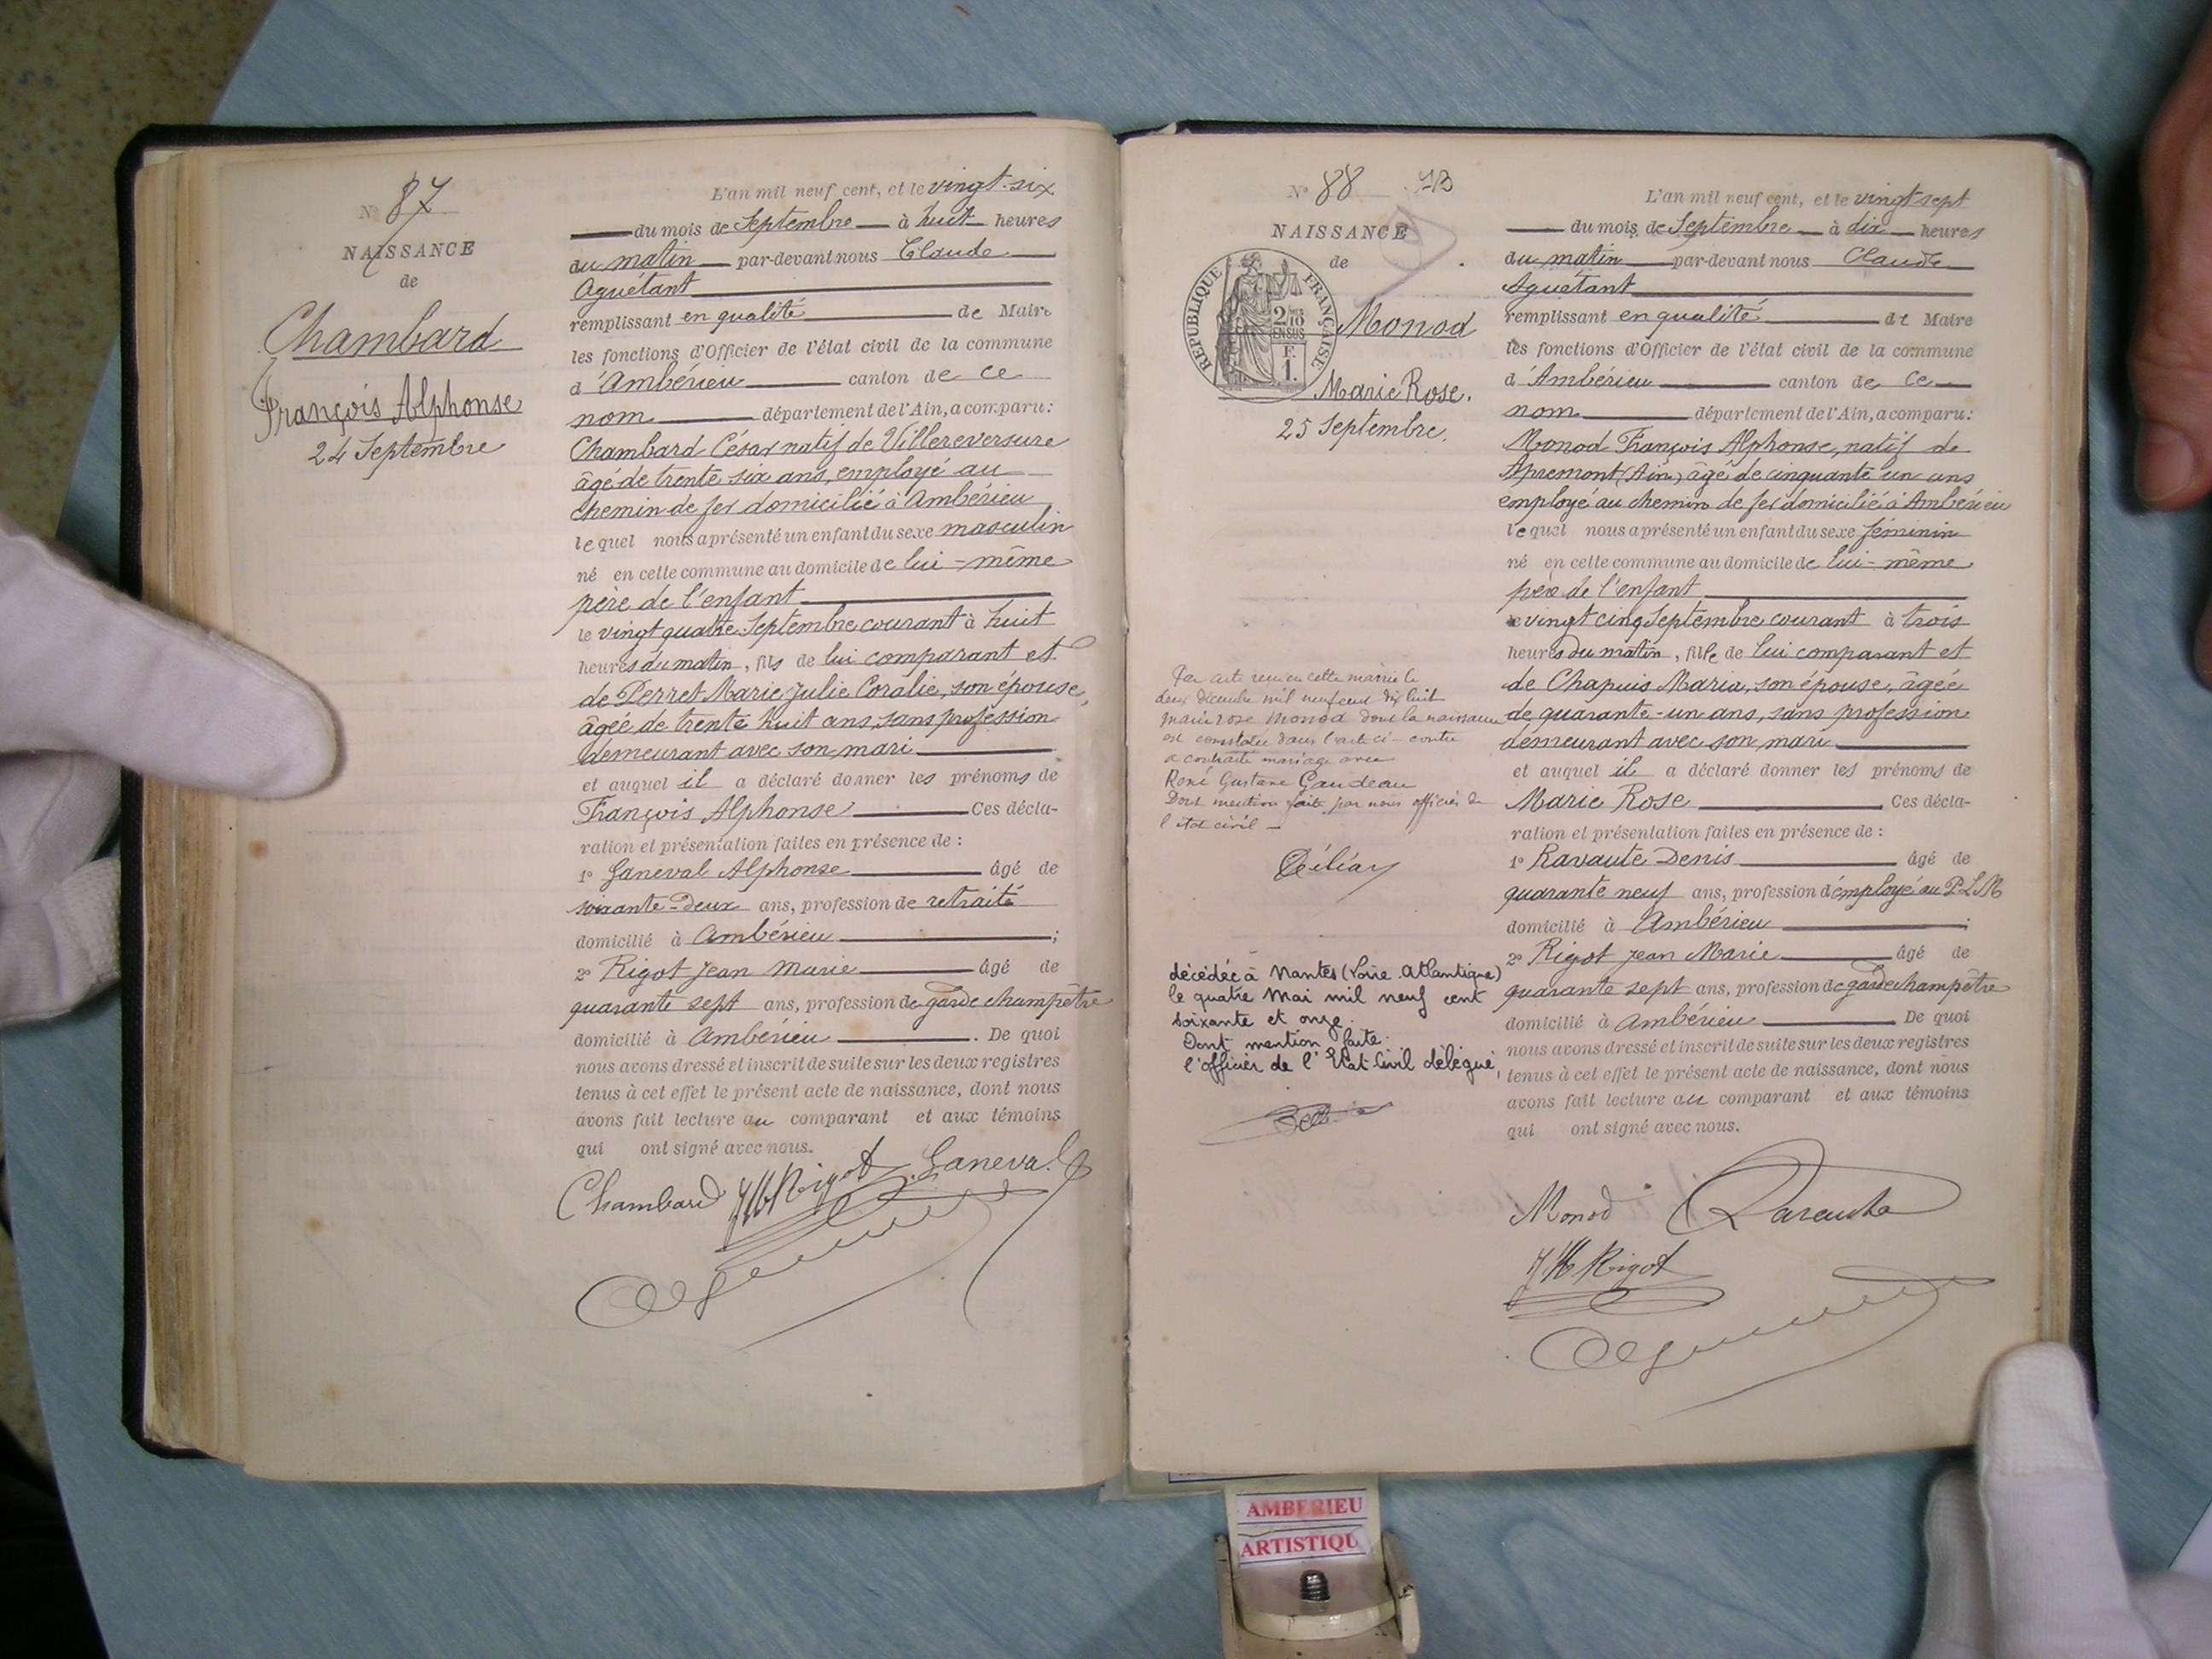 N° 87
NAISSANCE
de
Chambard
François Alphonse
24 Septembre
L'an mil neuf cent, et le vingt-six
du mois de Septembre à huit heures
du matin par-devant nous Claude
Aguétant
remplissant en qualité de Maire
les fonctions d'Officier de l'état civil de la commune
d'Ambérieu canton de ce
nom département de l'Ain, a comparu:
Chambard César natif de Villereversure
âgé de trente six ans, employé au
chemin de fer domicilié à Ambérieu
lequel nous a présenté un enfant du sexe masculin
né en cette commune au domicile de lui-même
père de l'enfant
le vingt quatre Septembre courant à huit
heures du matin, fils de lui comparant et
de Perret Marie Julie Coralie, son épouse,
âgée de trente huit ans, sans profession
demeurant avec son mari
et auquel il a déclaré donner les prénoms de
François Alphonse Ces décla-
ration et présentation faites en présence de :
1° Ganeval Alphonse âgé de
soixante-deux ans, profession de retraité
domicilié à Ambérieu ;
2° Rigot Jean Marie âgé de
quarante sept ans, profession de garde champêtre
domicilié à Ambérieu . De quoi
nous avons dressé et inscrit de suite sur les deux registres
tenus à cet effet le présent acte de naissance, dont nous
avons fait lecture au comparant et aux témoins
qui ont signé avec nous.
Chambard JM Rigot Ganeval
N° 88
NAISSANCE
de
RÉPUBLIQUE FRANÇAISE
2/10
EN SUS
F.
1.
Monod
Marie Rose.
25 Septembre.
Par acte reçu en cette mairie le
deux décembre mil neuf cent dix huit
Marie rose Monod dont la naissance
est constatée dans l'acte ci-contre
a contracté mariage avec
René Gustave Gaudeau
Dont mention faite par nous officier de
l'état civil
décédée à Nantes (Loire Atlantique)
le quatre Mai mil neuf cent
soixante et onze.
Dont mention faite.
l'officier de l'Etat Civil délégué,
L'an mil neuf cent, et le vingt sept
du mois de Septembre à dix heures
du matin par-devant nous Claude
Aguétant
remplissant en qualité de Maire
les fonctions d'Officier de l'état civil de la commune
d'Ambérieu canton de ce
nom département de l'Ain, a comparu:
Monod François Alphonse, natif de
Apremont (Ain) âgé de cinquante un ans
employé au chemin de fer domicilié à Ambérieu
lequel nous a présenté un enfant du sexe féminin
né en cette commune au domicile de lui-même
père de l'enfant
le vingt cinq Septembre courant à trois
heures du matin, fille de lui comparant et
de Chapuis Maria, son épouse, âgée
de quarante-un ans, sans profession
demeurant avec son mari
et auquel il a déclaré donner les prénoms de
Marie Rose Ces décla-
ration et présentation faites en présence de :
1° Ravaute Denis âgé de
quarante neuf ans, profession d'employé au P.L.M
domicilié à Ambérieu ;
2° Rigot Jean Marie âgé de
quarante sept ans, profession de garde champêtre
domicilié à Ambérieu De quoi
nous avons dressé et inscrit de suite sur les deux registres
tenus à cet effet le présent acte de naissance, dont nous
avons fait lecture au comparant et aux témoins
qui ont signé avec nous.
Monod Ravaute
JM Rigot
AMBERIEU
ARTISTIQU